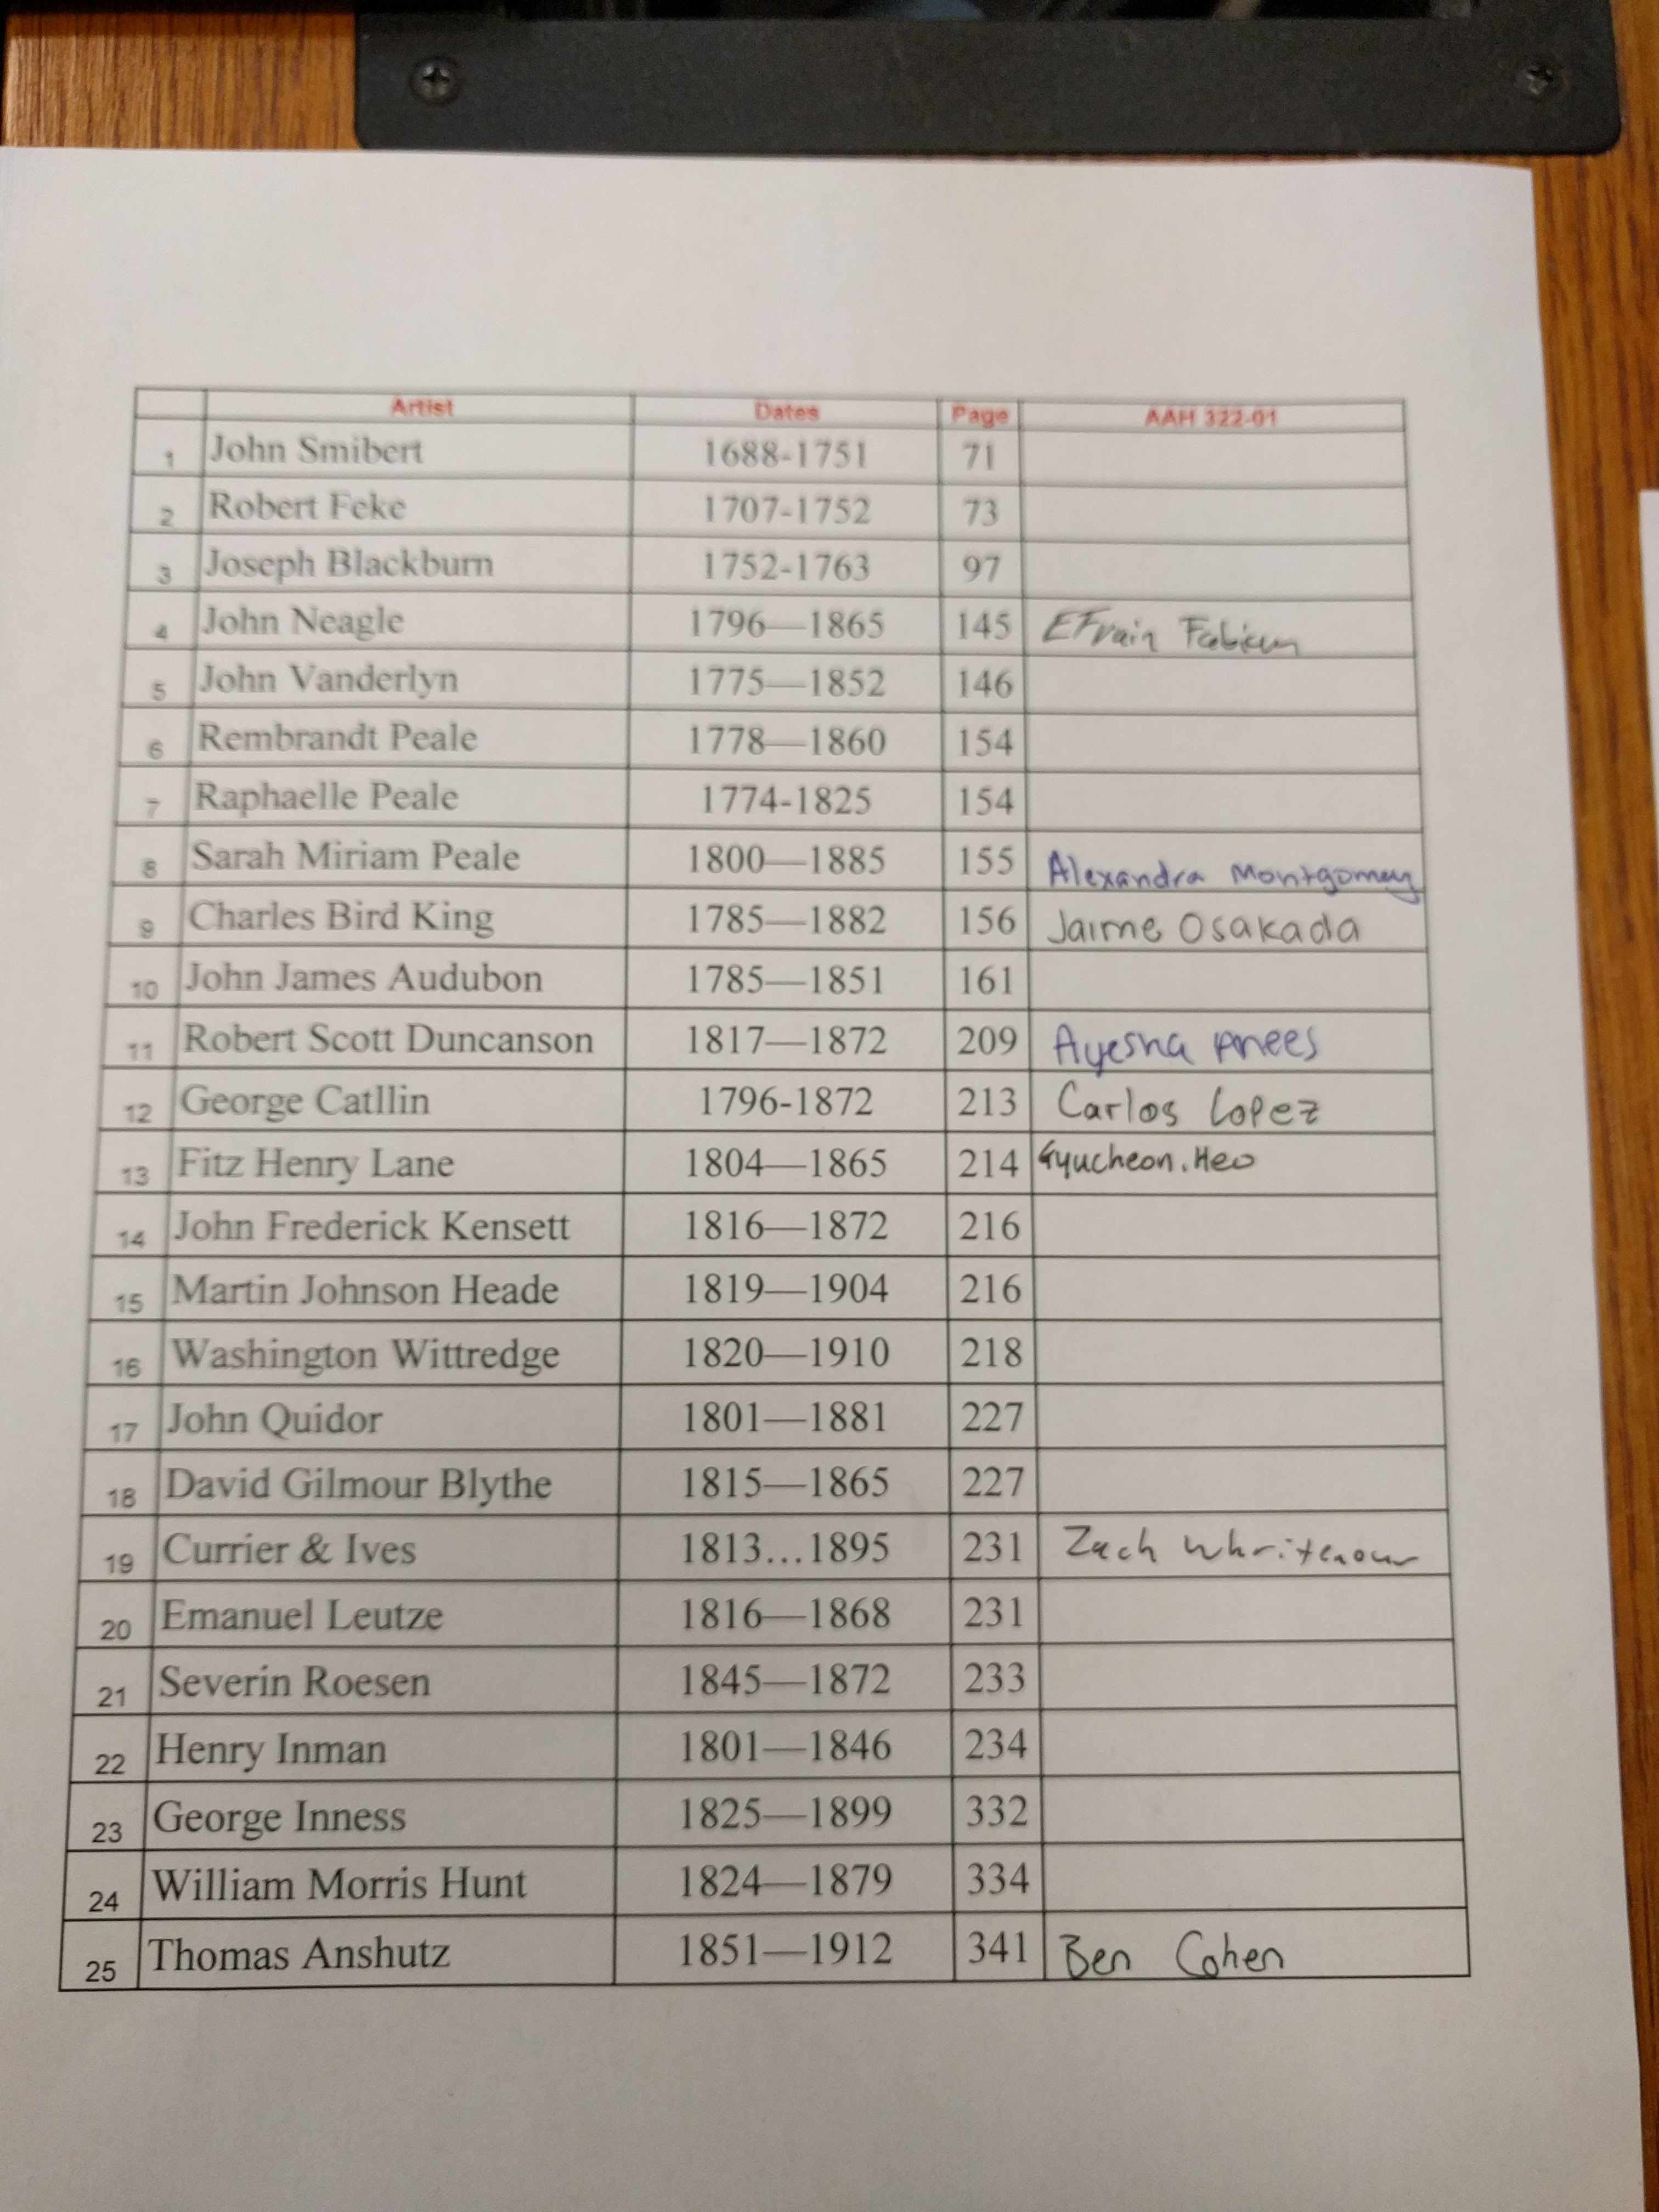 Artist Dates Page AAH 322-01
1 John Smibert 1688-1751 71
2 Robert Feke 1707-1752 73
3 Joseph Blackburn 1752-1763 97
4 John Neagle 1796—1865 145 EFrain Fabian
5 John Vanderlyn 1775—1852 146
6 Rembrandt Peale 1778—1860 154
7 Raphaelle Peale 1774-1825 154
8 Sarah Miriam Peale 1800—1885 155 Alexandra Montgomery
9 Charles Bird King 1785—1882 156 Jaime Osakada
10 John James Audubon 1785—1851 161
11 Robert Scott Duncanson 1817—1872 209 Ayesha Anees
12 George Catllin 1796-1872 213 Carlos Lopez
13 Fitz Henry Lane 1804—1865 214 Gyucheon.Heo
14 John Frederick Kensett 1816—1872 216
15 Martin Johnson Heade 1819—1904 216
16 Washington Wittredge 1820—1910 218
17 John Quidor 1801—1881 227
18 David Gilmour Blythe 1815—1865 227
19 Currier & Ives 1813...1895 231 Zach Whritenour
20 Emanuel Leutze 1816—1868 231
21 Severin Roesen 1845—1872 233
22 Henry Inman 1801—1846 234
23 George Inness 1825—1899 332
24 William Morris Hunt 1824—1879 334
25 Thomas Anshutz 1851—1912 341 Ben Cohen